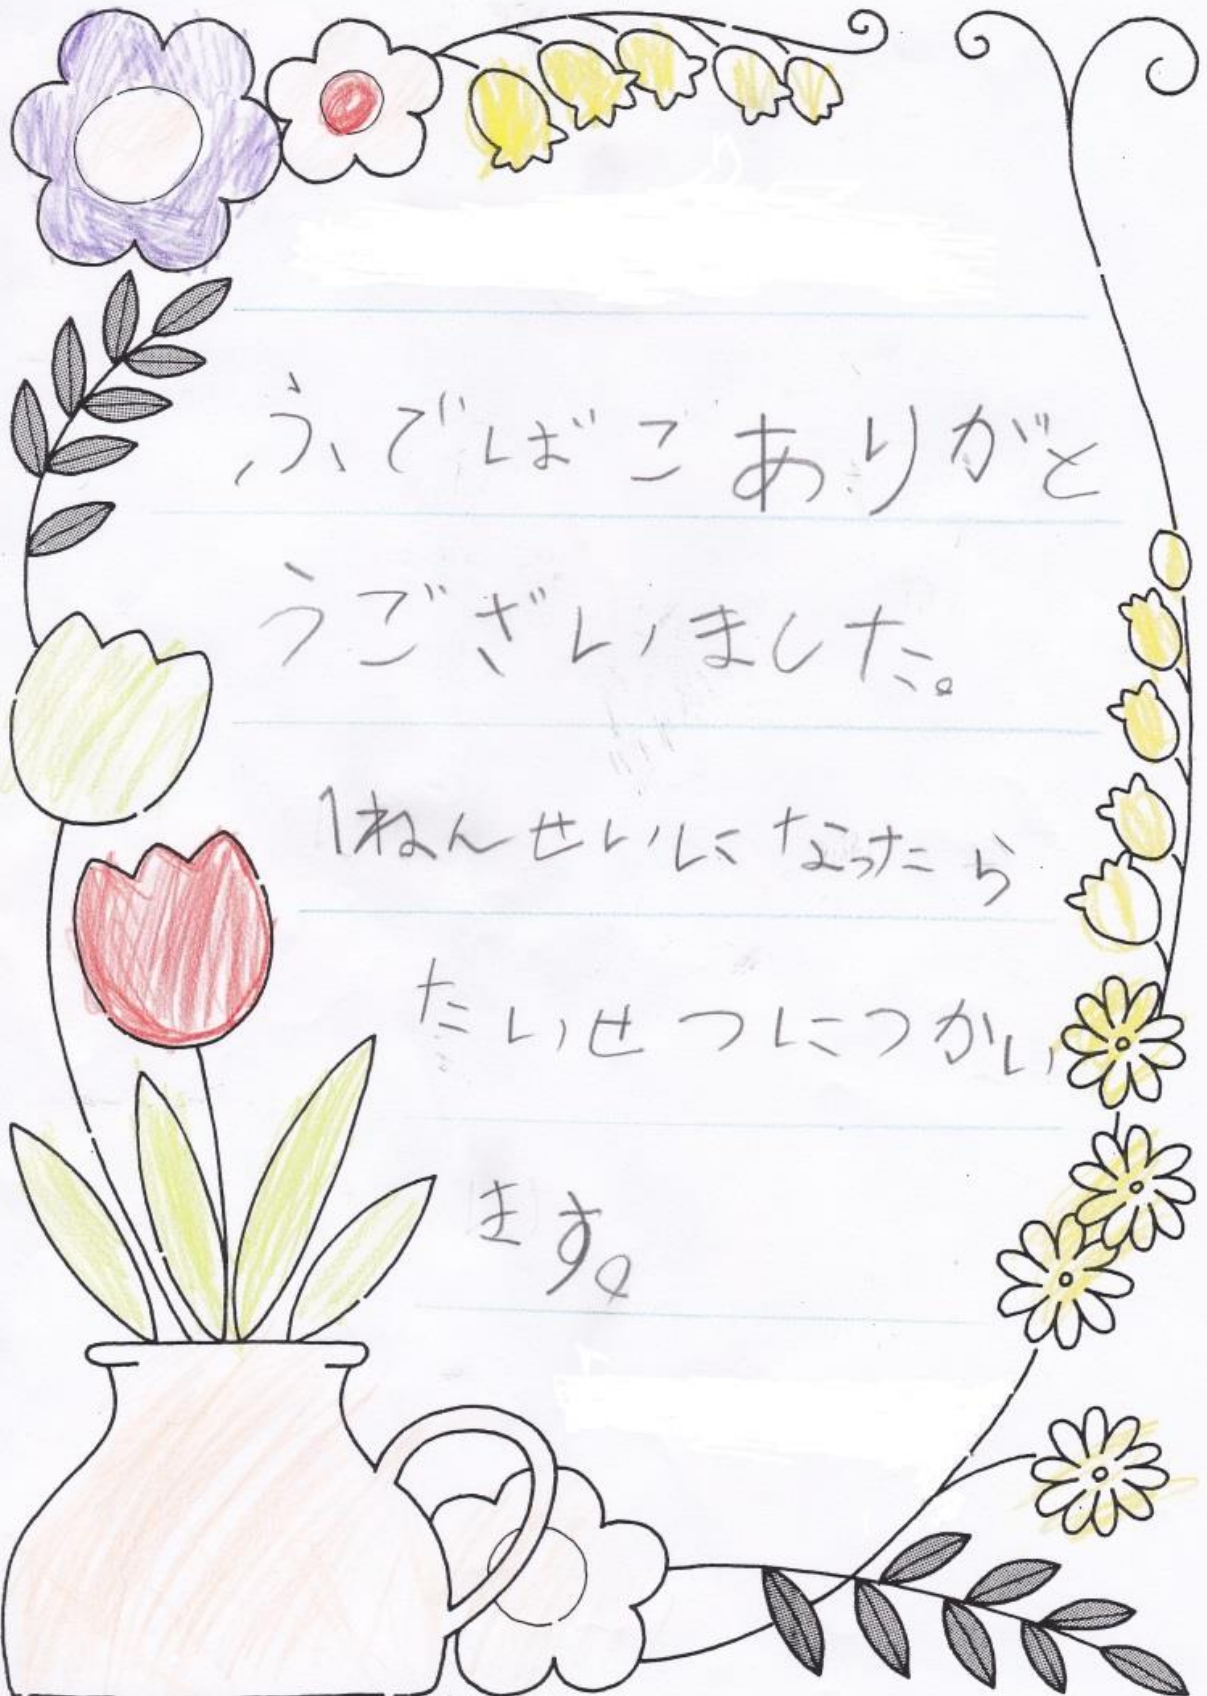 ふでばこありがと
うございました。
1ねんせいになったら
たいせつにつかい
ます。